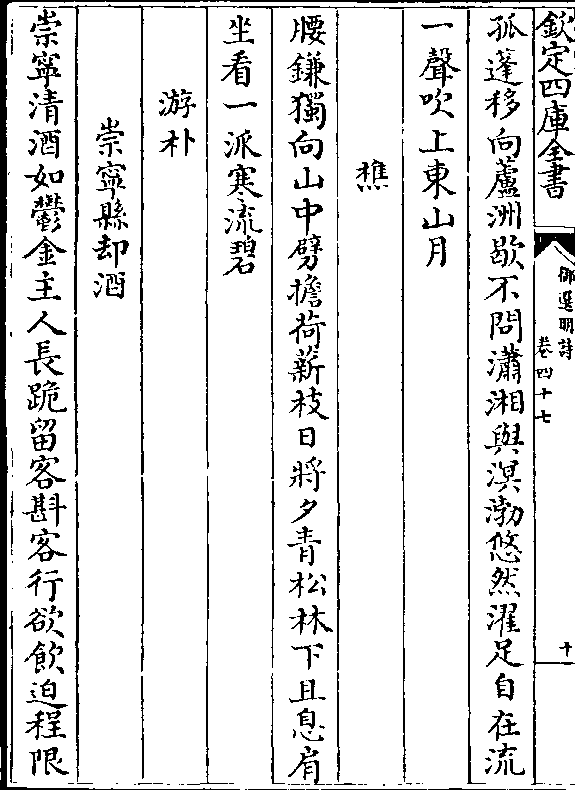 欽定四庫全書
御選明詩
卷四十七
十
孤蓬移向蘆洲歇不問瀟湘與溟渤悠然濯足自在流
一聲吹上東山月
樵
腰鎌獨向山中劈擔荷薪枝日將夕青松林下且息肩
坐看一派寒流碧
游朴
崇寧縣却酒
崇寧清酒如鬱金主人長跪留客斟客行欲飲迫程限